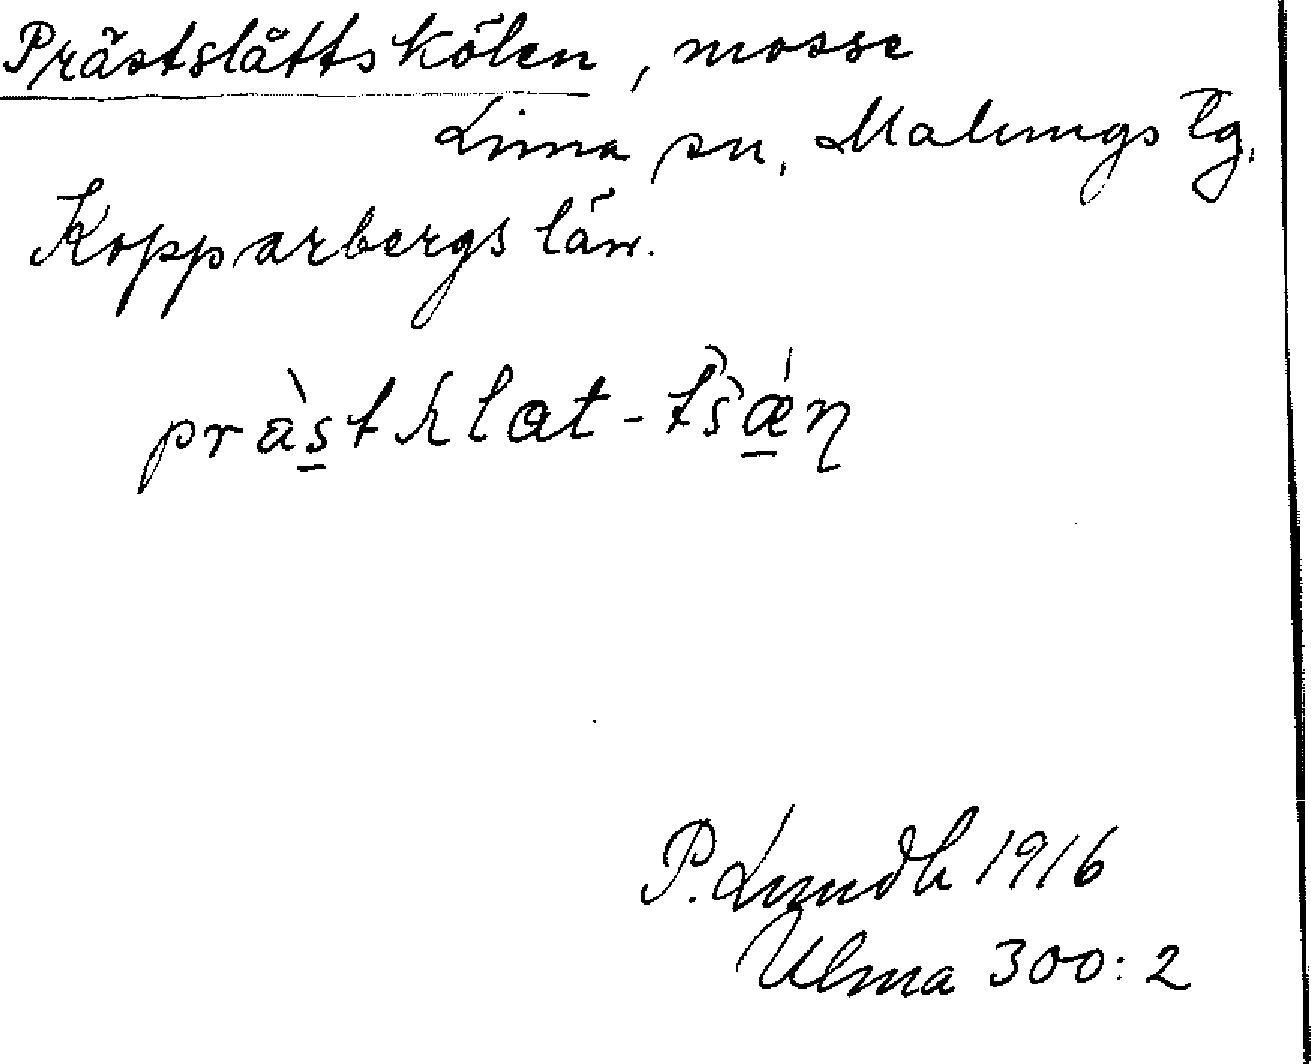 Prästslåttskölen, mosse
Lima sn, Malungs tg,
Kopparbergs län.
P. Lundh 1916
Ulma 300:2